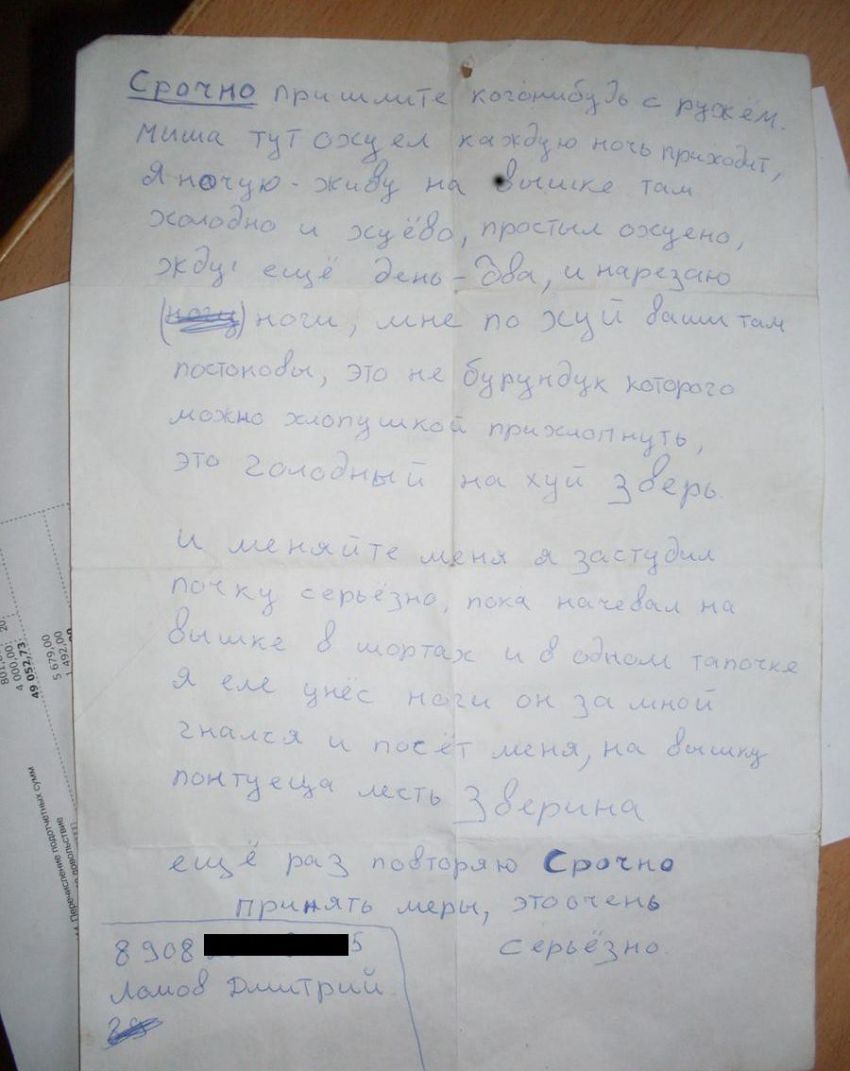 Срочно пришлите когонибудь с ружём.
Миша тут охуел каждую ночь приходит,
Я ночую - живу на вышке там
холодно и хуёво, простыл охуено,
жду ещё день - два, и нарезаю
(ноги) ноги, мне по хуй ваши там
постоновы, это не бурундук которого
можно хлопушкой прихлопнуть,
это голодный на хуй зверь.
и меняйте меня я застудил
почку серьёзно, пока начевал на
вышке в шортах и в одном тапочке
я еле унёс ноги он за мной
гнался и посёт меня, на вышку
понтуеща лесть Зверина
ещё раз повторяю Срочно
принять меры, это очень
серьёзно
8 908 5
Ломов Дмитрий
801, 20;
4 000,00;
49 052,73
5 679,00
1 492,00
Перечисление подотчетных сумм
довольствие